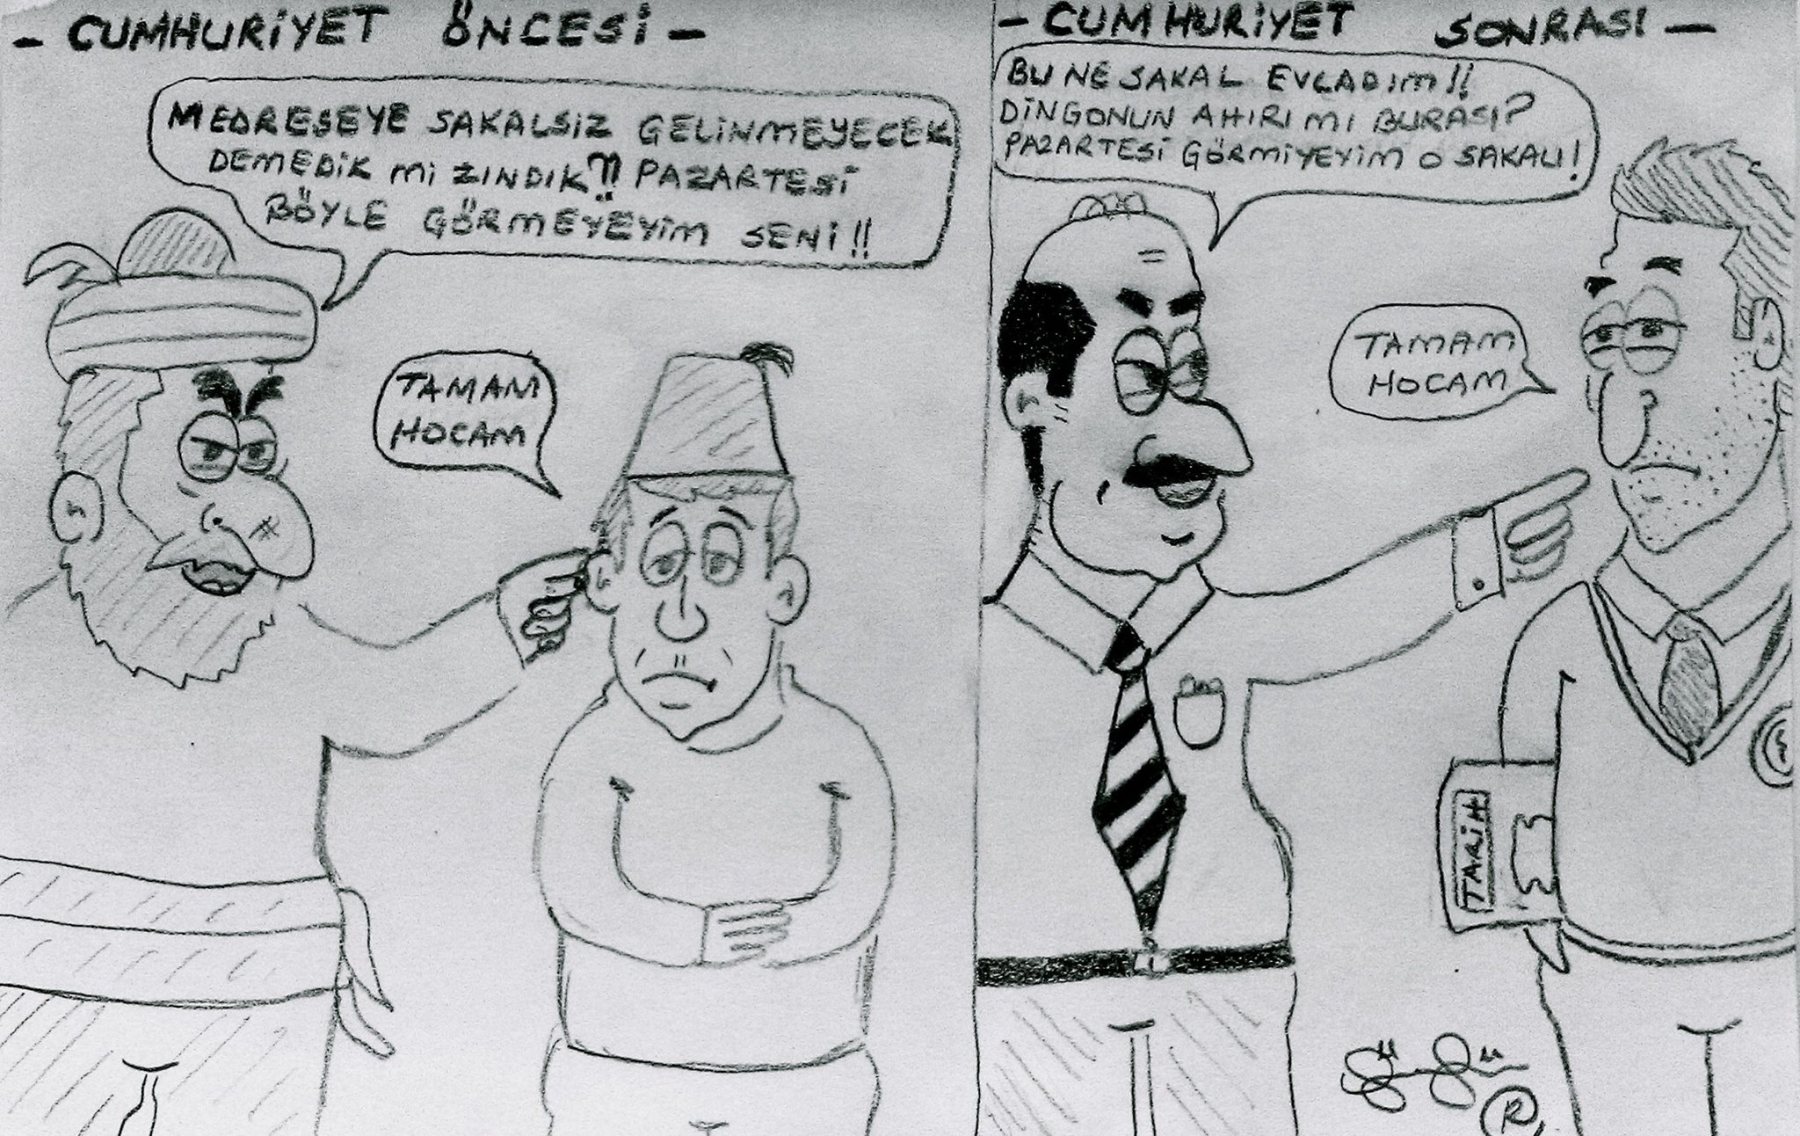 - CUMHURİYET ÖNCESİ -
MEDRESEYE SAKALSIZ GELİNMEYECEK
DEMEDİK Mİ ZINDIK?! PAZARTESİ
BÖYLE GÖRMEYEYİM SENİ!!
TAMAM
HOCAM
- CUMHURİYET SONRASI -
BU NE SAKAL EVLADIM!!
DİNGONUN AHIRI MI BURASI?
PAZARTESİ GÖRMİYEYİM O SAKALI!
TAMAM
HOCAM
TARİH
R